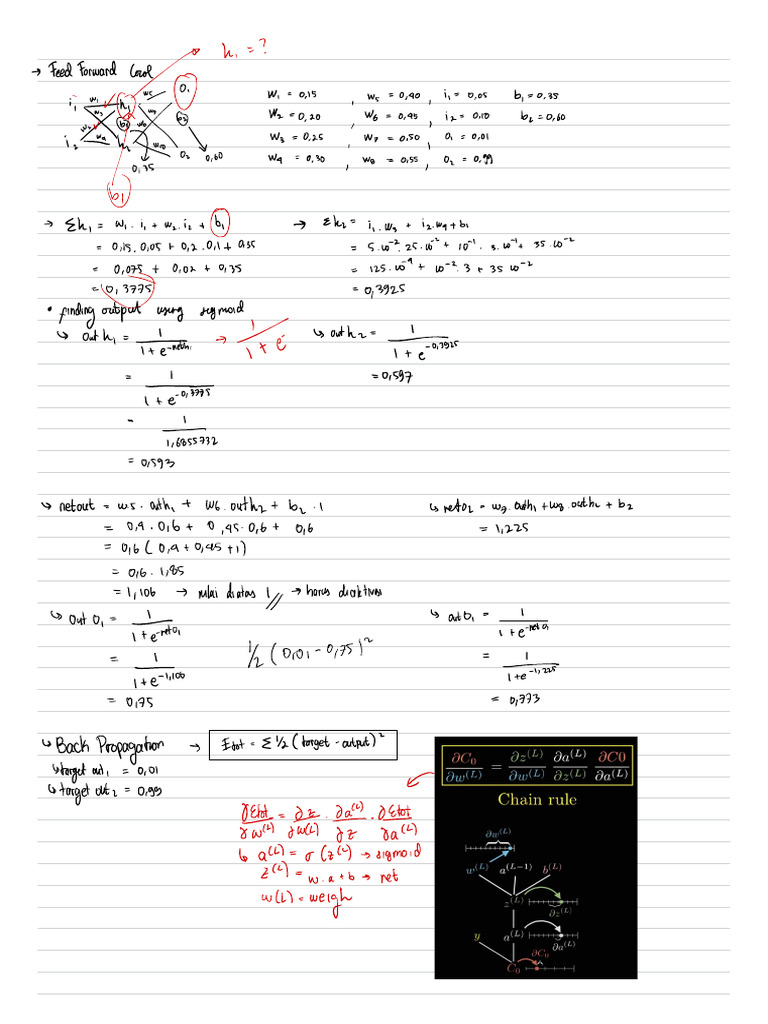 h₁ = ?
→ Feed Forward
i₁ w₁ h₁ w₅ O₁
w₃
b₁ b₂
w₂ w₆
i₂ w₄ h₂ w₁₀ O₂ 0,60
0,35
b₁
w₁ = 0,15 , w₅ = 0,40 , i₁ = 0,05 b₁ = 0,35
w₂ = 0,20 , w₆ = 0,45 , i₂ = 0,10 b₂ = 0,60
w₃ = 0,25 , w₇ = 0,50 , O₁ = 0,01
w₄ = 0,30 , w₈ = 0,55 , O₂ = 0,99
→ Σh₁ = w₁ . i₁ + w₂ . i₂ + b₁
= 0,15 . 0,05 + 0,2 . 0,1 + 0,35
= 0,075 + 0,02 + 0,35
= 0,3775
→ Σh₂ = i₁ . w₃ + i₂ . w₄ + b₁
= 5.10⁻² . 25.10⁻² + 10⁻¹ . 3.10⁻¹ + 35.10⁻²
= 125.10⁻⁴ + 10⁻² . 3 + 35.10⁻²
= 0,3925
• finding output using sigmoid
↳ out h₁ = 1 / (1 + e^-neth₁) → 1 / (1 + e^-
= 1 / (1 + e^-0,3775)
= 1 / 1,6855732
= 0,593
↳ out h₂ = 1 / (1 + e^-0,3925)
= 0,597
↳ netout = w5 . outh₁ + w6 . outh₂ + b₂ . 1
= 0,4 . 0,6 + 0,45 . 0,6 + 0,6
= 0,6 ( 0,4 + 0,45 + 1 )
= 0,6 . 1,85
= 1,106 → nilai diatas 1 // → harus diaktivasi
↳ neto₂ = w₇ . outh₁ + w₈ . outh₂ + b₂
= 1,225
↳ out O₁ = 1 / (1 + e^-neto₁)
= 1 / (1 + e^-1,106)
= 0,75
1/2 ( 0,01 - 0,75 )²
↳ out O₁ = 1 / (1 + e^-neto₁)
= 1 / (1 + e^-1,225)
= 0,773
↳ Back Propagation → Etot = Σ 1/2 ( target - output )²
↳ target out₁ = 0,01
↳ target out₂ = 0,99
∂Etot/∂w^(L) = ∂z/∂w(L) . ∂a^(L)/∂z . ∂Etot/∂a^(L)
↳ a^(L) = σ(z^(L)) → sigmoid
z^(L) = w . a + b → net
w(L) = weigh
∂C₀/∂w^(L) = ∂z^(L)/∂w^(L) ∂a^(L)/∂z^(L) ∂C0/∂a^(L)
Chain rule
∂w^(L)
w^(L) a^(L−1) b^(L)
z^(L) ∂z^(L)
y a^(L) ∂a^(L)
∂C₀
C₀